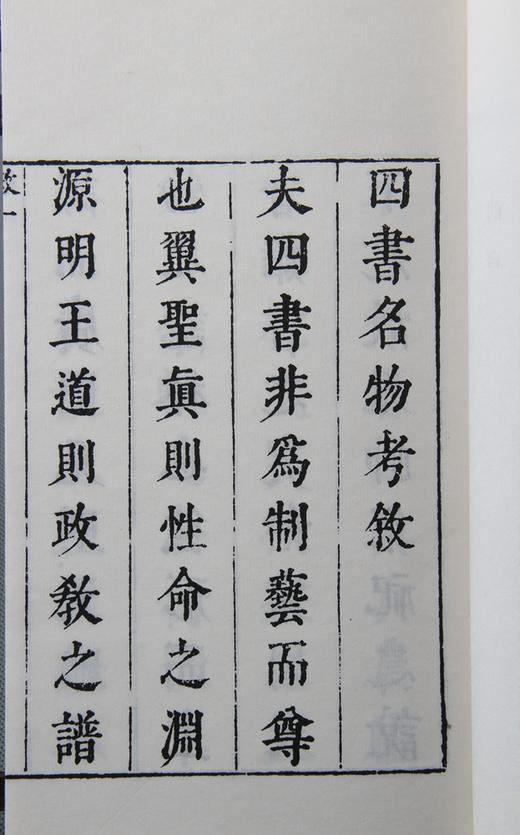 四書名物考敘
夫四書非爲制藝而尊
也翼聖眞則性命之淵
源明王道則政敎之譜